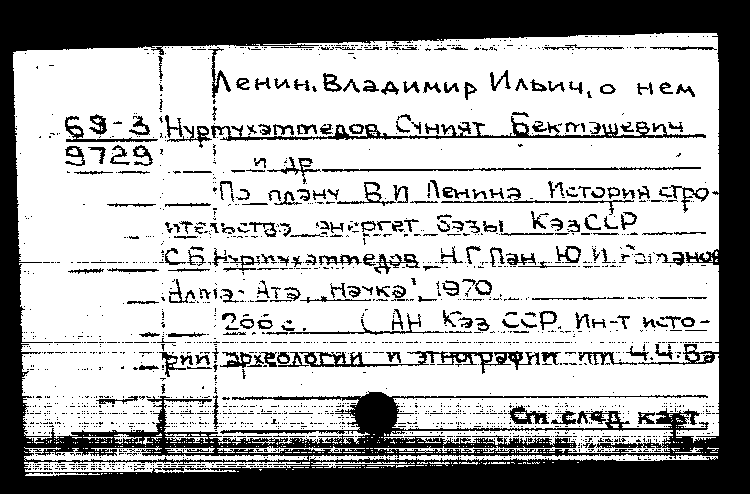 Ленин, Владимир Ильич, о нем
69-3 Нуртухаммедов, Суният Бекташевич
9729 и др
По плану В.И Ленина История стро-
ительства энергет базы КазССР
С.Б. Нуртухаммедов, Н.Г. Пан, Ю.И.
Алма-Ата, „Наука", 1970.
266 с. (АН Каз ССР. Ин-т исто-
рии археологии и этнографии им. Ч.Ч. Ва-
См. след. карт.